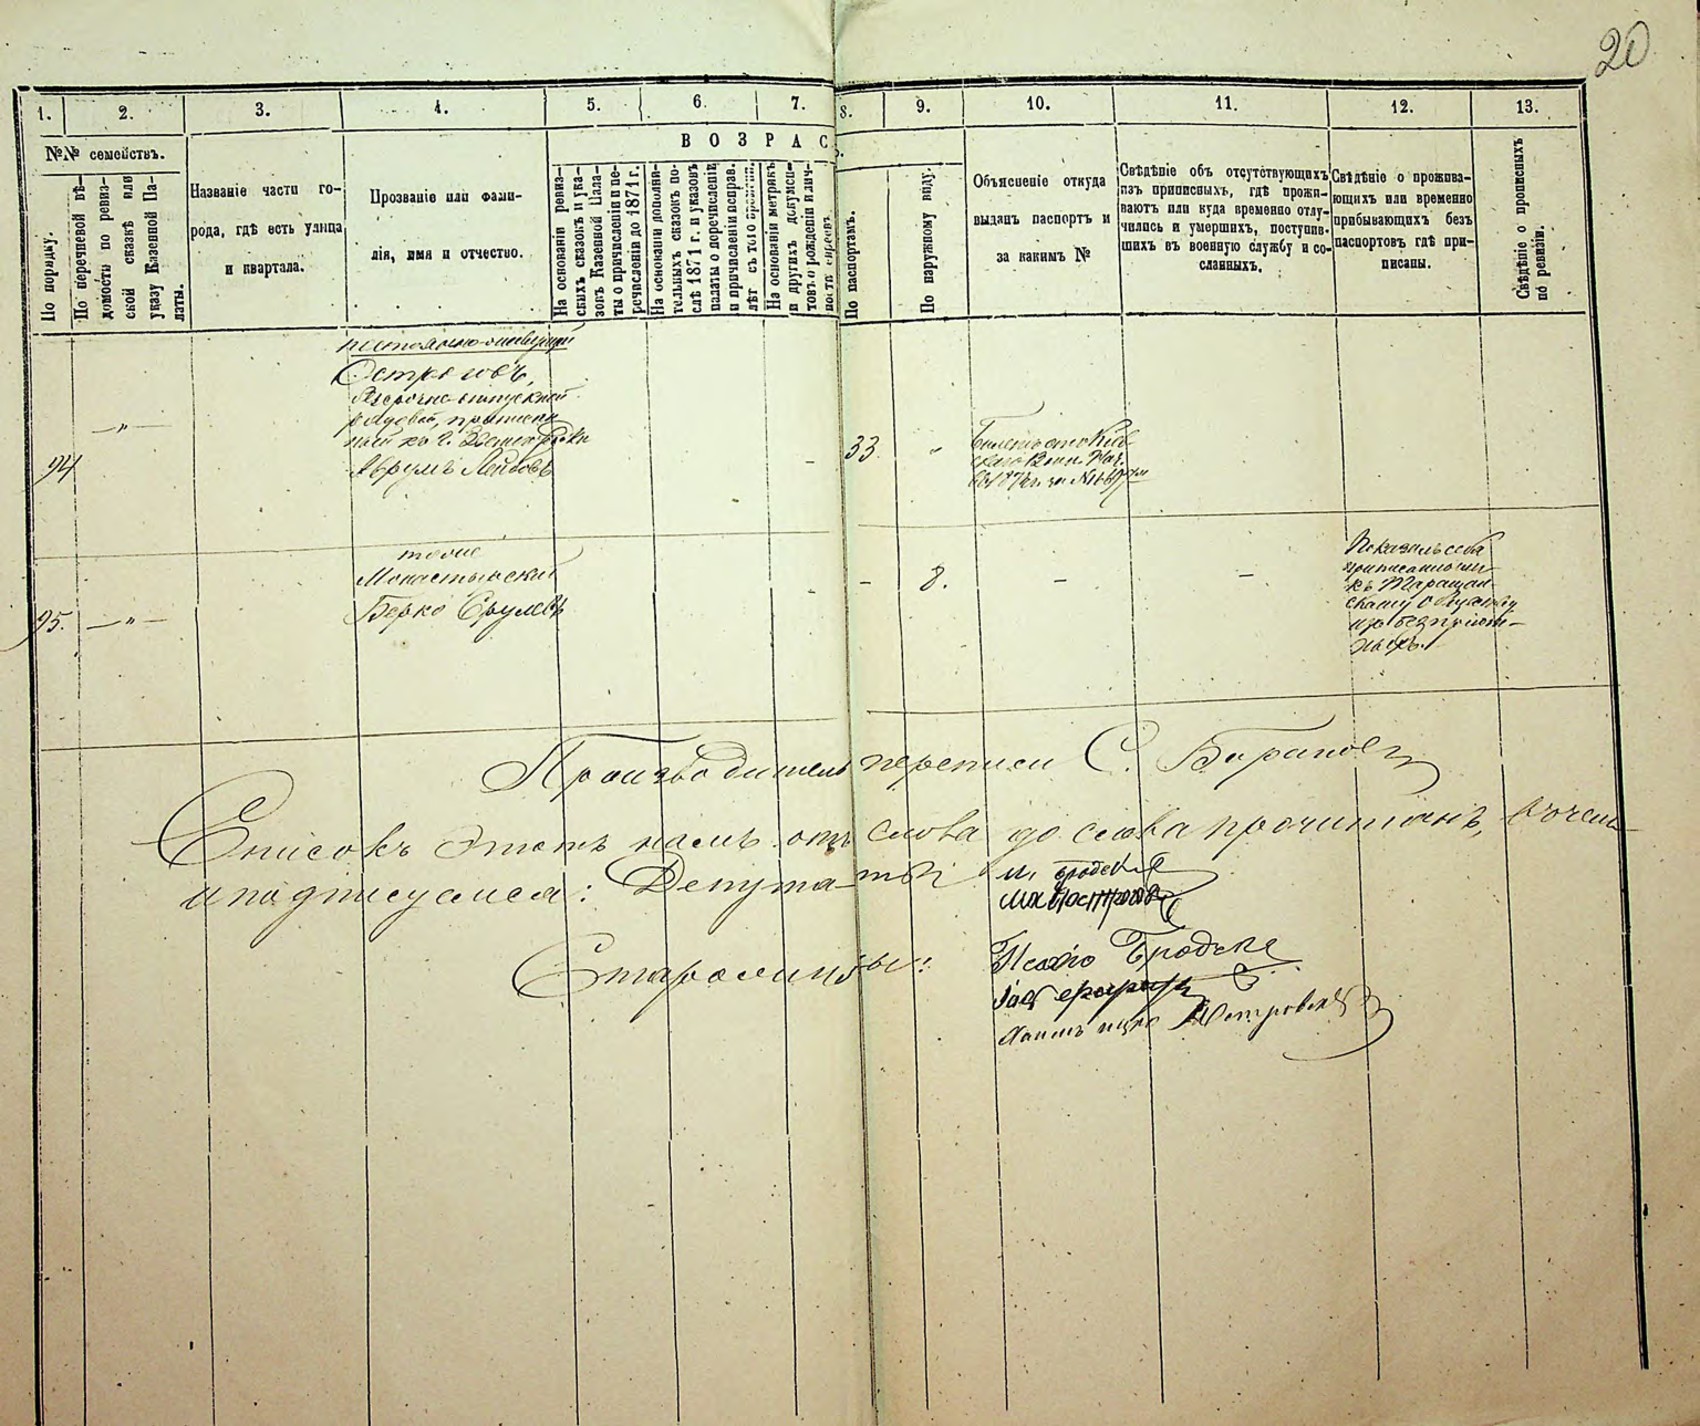 20
1. 2. 3. 4. 5. 6. 7. 8. 9. 10. 11. 12. 13.
№№ семействъ.
По порядку.
По перечневой вѣ-
домость по ревиз-
ской сказкѣ или
указу Казенной Па-
латы.
Названіе части го-
рода, гдѣ есть улица
и квартала.
Прозваніе или фами-
лія, имя и отчество.
ВОЗРАС
На основаніи ревиз-
скихъ сказокъ и ука-
зовъ Казенной Пала-
ты о причисленіи и пе-
речисленіи до 1871 г.
На основаніи дополни-
тельныхъ сказокъ по-
слѣ 1871 г. и указовъ
палаты о перечисленіи
и причисленіи исправ.
лѣт съ того времени.
На основаніи метрикъ
и другихъ докумен-
товъ о рожденіи и лич-
ности евреевъ
По паспортамъ.
По наружному виду.
Объясненіе откуда
выданъ паспортъ и
за какимъ №
Свѣдѣніе объ отсутствующихъ
изъ приписныхъ, гдѣ прожи-
ваютъ или куда временно отлу-
чились и умершихъ, поступив-
шихъ въ военную службу и со-
сланныхъ.
Свѣдѣніе о прожива-
ющихъ или временно
прибывающихъ безъ
паспортовъ гдѣ при-
писаны.
Свѣдѣніе о прописныхъ
по ревизіи.
Островъ,
рядовой, приписан
ный къ г.
94 — " — Аврумъ Лейбовъ 33 "
Билетъ отъ Кіев
скаго Воин. Нач.
тоже
Монастырскій
95. — " — Берко Срулевъ - 8. — —
Показалъ себя
приписаннымъ
къ Таращан
скому Обществу
изъ безпріют-
ныхъ.
Производитель переписи С. Барановъ
Списокъ этотъ намъ отъ слова до слова прочитанъ, в чемъ
и подписуемся: Депутаты И. Бродскій
Старосины:
Бродскі
Петровскій